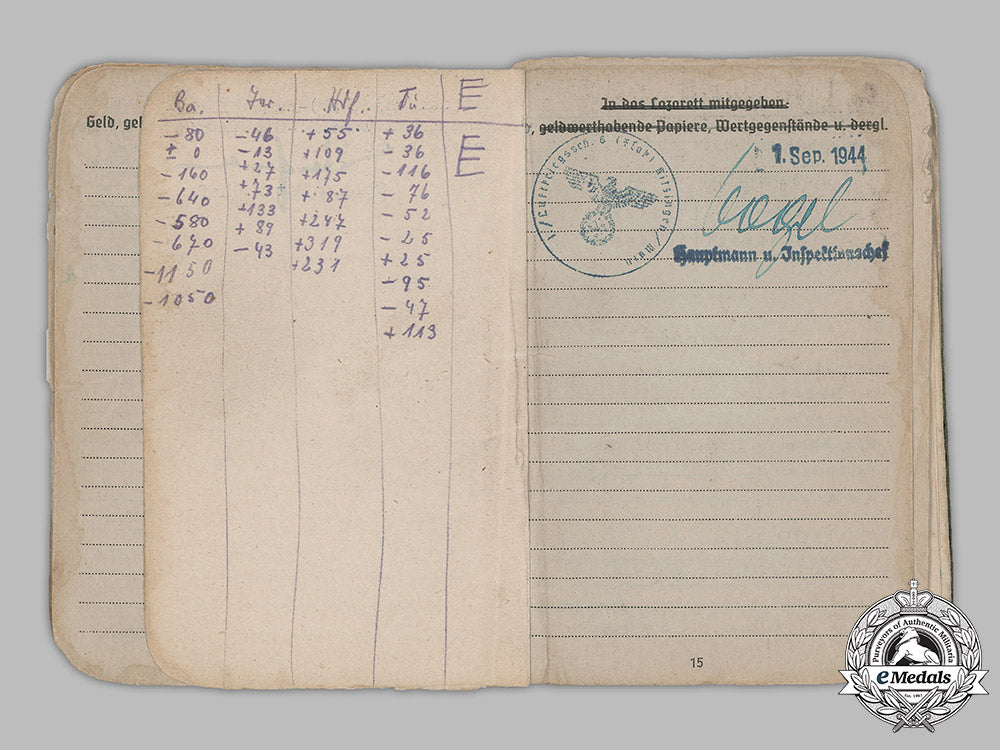 Geld, gel
Ba. Jor. Hdf. Tü E
-80 -46 +55 +36 E
± 0 -13 +109 -36 E
-160 +27 +175 -116
-640 +73 +87 -76
-580 +133 +247 -52
-670 +89 +319 -25
-1150 -43 +231 +25
-1050 -95
-47
+113
In das Lazarett mitgegeben.
geldwerthabende Papiere, Wertgegenstände u. dergl.
1. Sep. 1944
Vogel
Hauptmann u. Inspektionschef
15
Purveyors of Authentic Militaria
eMedals